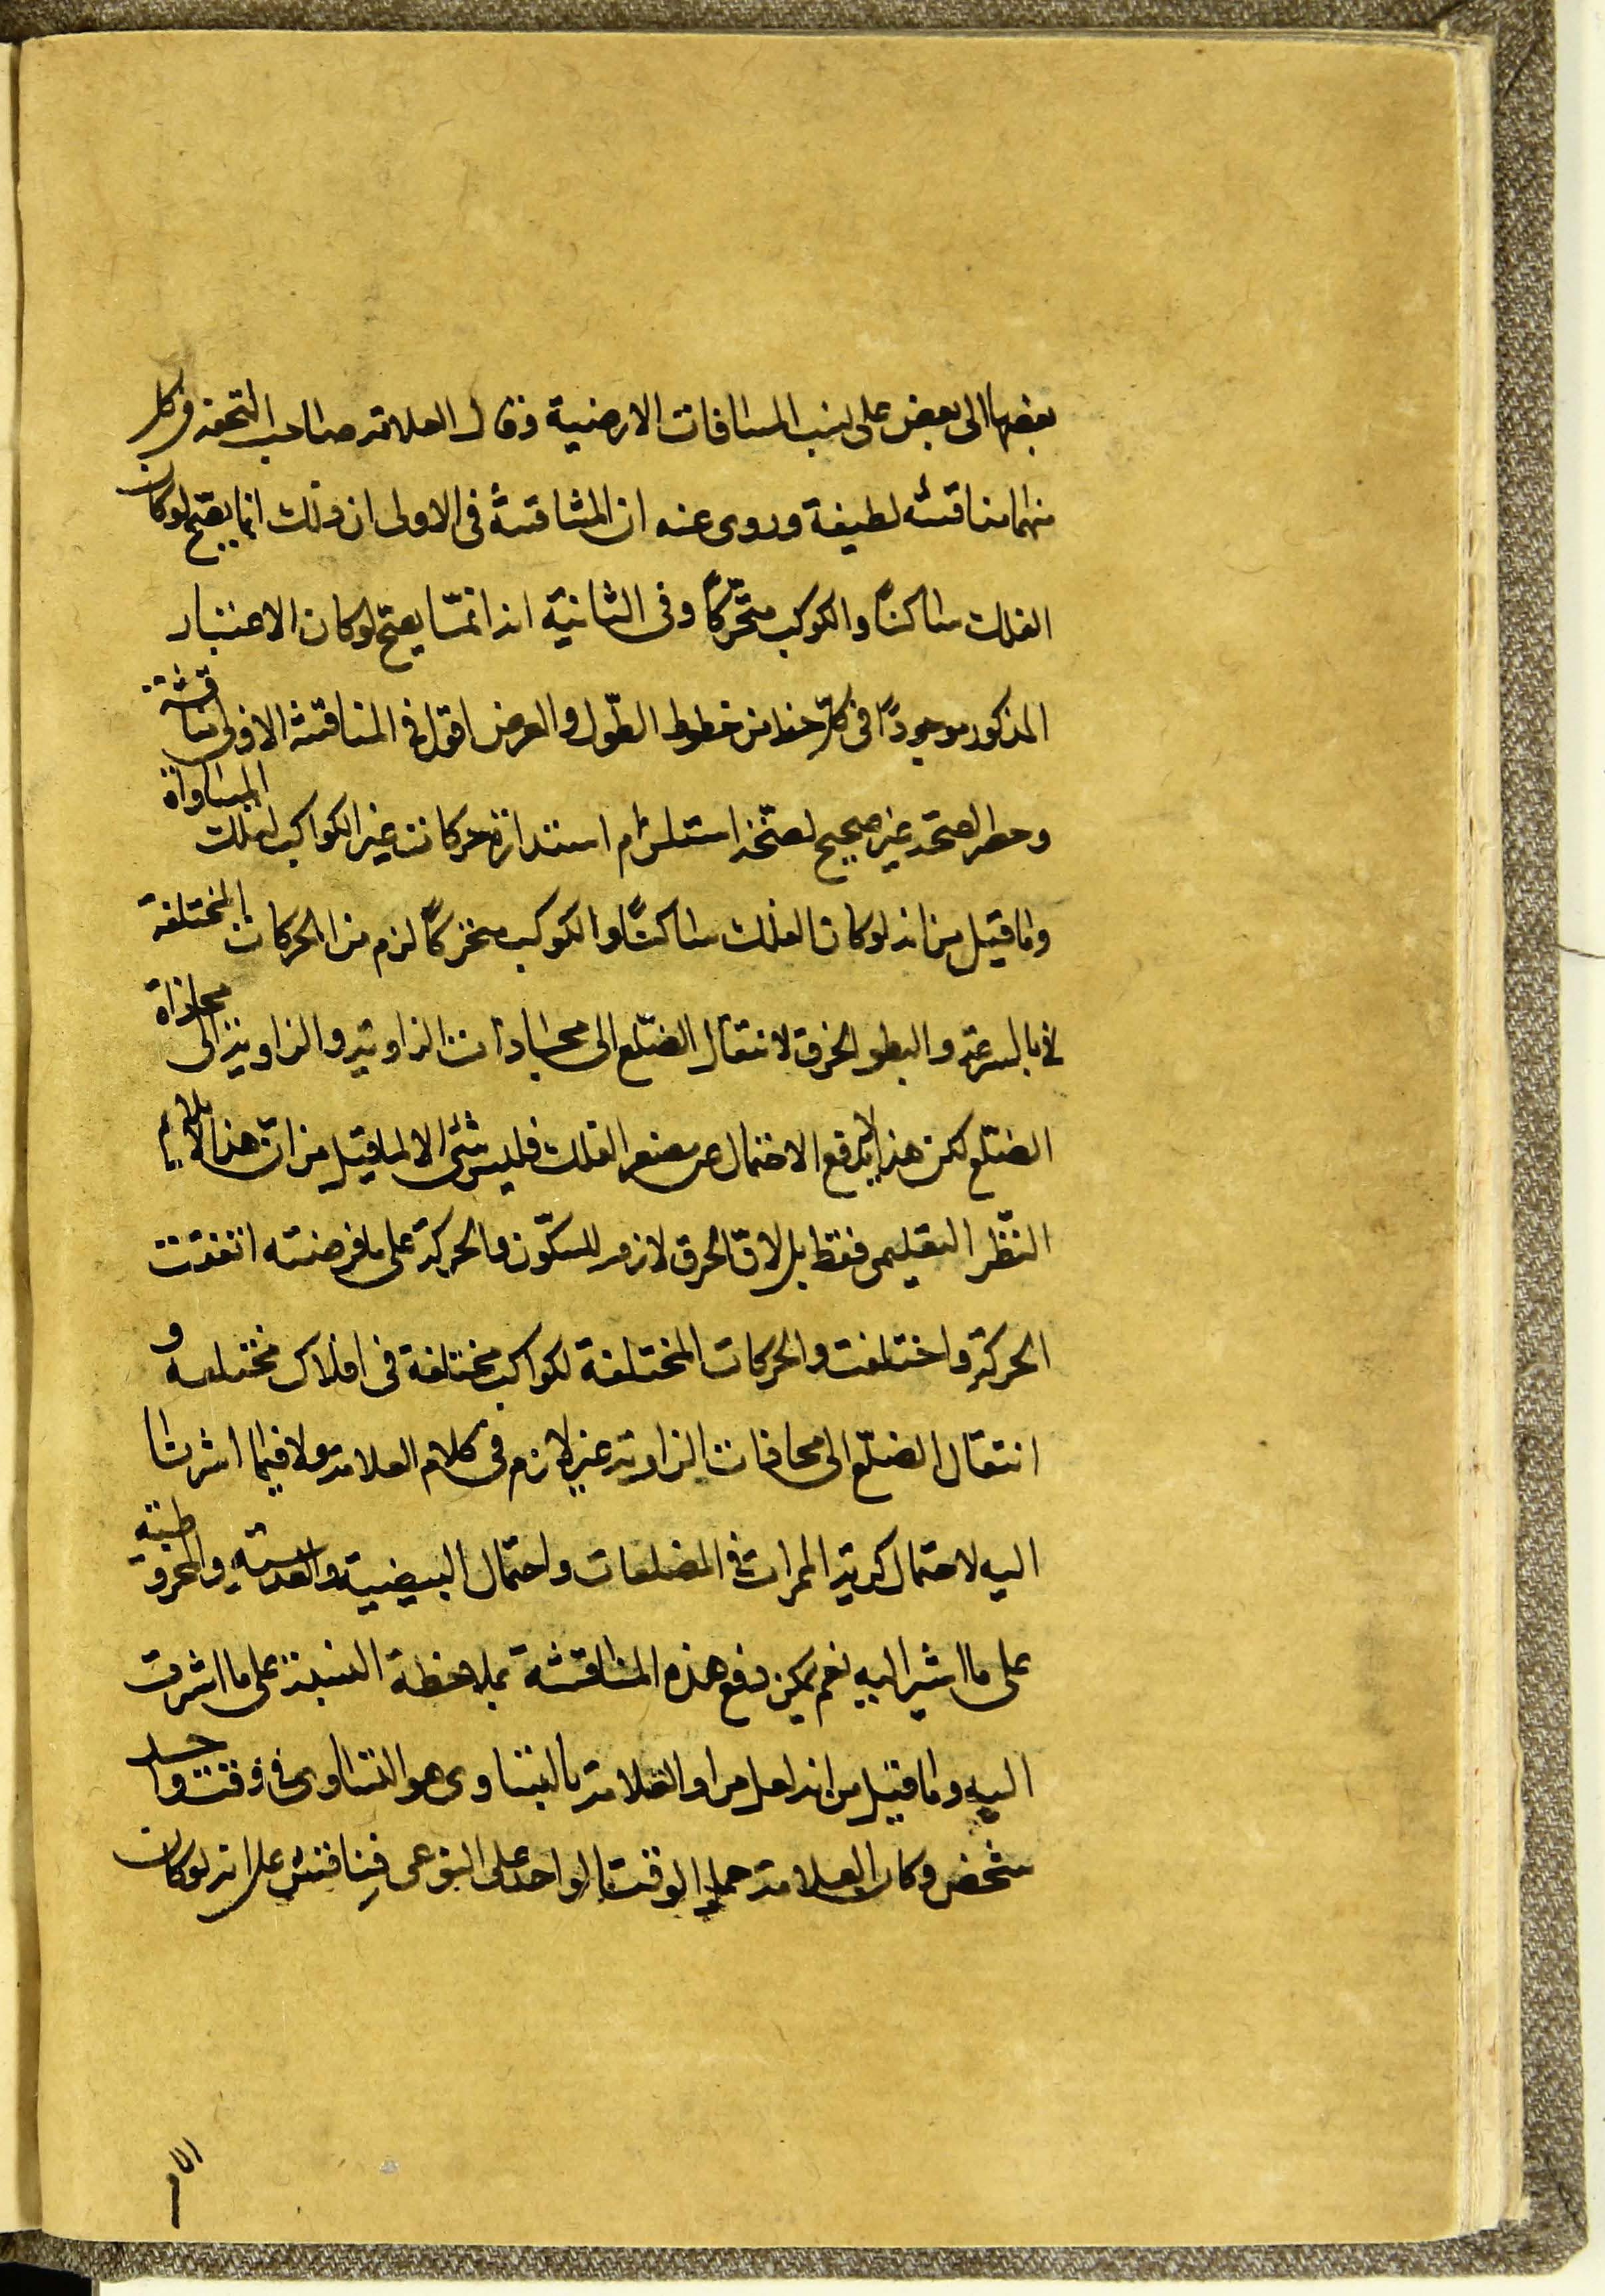 بعضها الى بعض على نسب المسافات الارضية وقال العلامة صاحب التحفة في كل
منهما مناقشة لطيفة وروى عنه ان المناقشة في الاولى ان ذلك انما يصح لو كان
الفلك ساكنًا والكوكب متحركًا وفي الثانية انه انما يصح لو كان الاعتبار
المذكور موجودًا في كل خط من خطوط الطول والعرض اقول في المناقشة الاولى مناقشة
غير صحيح استلزام استدارة حركات غير الكواكب لفلك المساواة
واما قيل من انه لو كان الفلك ساكنًا والكوكب متحركًا لزم من الحركات المختلفة
في بالسرعة والبطو الخرق لانتقال الضلع الى محاذات الزاوية والزاوية الى محاذاة
الضلع لكن هذا يرفع الاحتمال عن مقعر الفلك فليس شئ الا لما قيل من ان هذا لا يلايم
النظر التعليمى فقط بل لان الخرق لازم للسكون والحركة على ما فرضته اتفقت
الحركة واختلفت والحركات المختلفة لكواكب مختلفة في افلاك مختلفه و
انتقال الضلع الى محاذات الزاوية غير لازم في كلام العلامة ولا فيما اشرنا
اليه لاحتمال كرية الممرات في المضلعات واحتمال البيضية والعدسية والمخروطية
على ما اشير اليه نعم يمكن دفع هذه المناقشة بملاحظة النسبة على ما اشرت
اليه واما قيل من انه لعل مراد العلامة بالتساوى هو التساوى في وقت واحد
شخص وكان العلامة حمل الوقت الواحد على النوعى فناقش على انه لو كان